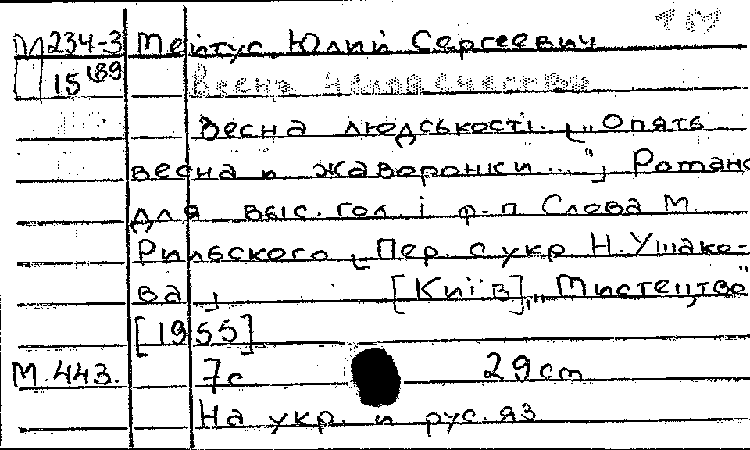 М234-3 Мейтус Юлий Сергеевич
15189
Весна человечества
Весна людськості. [„Опять
весна и жаворонки..."] Романс
для выс. гол. і ф-п Слова М.
Рильского [Пер. с укр Н. Ушако-
ва] [Київ], „Мистецтво"
[1955]
М.443. 7с 29см
На укр. и рус. яз